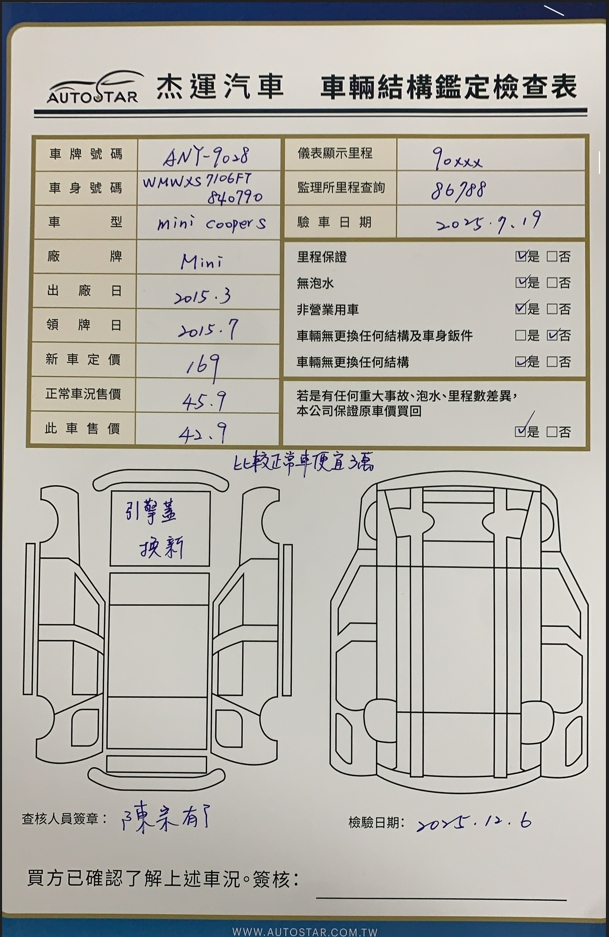 AUTOSTAR 杰運汽車 車輛結構鑑定檢查表
車牌號碼 ANY-9028 儀表顯示里程 90xxx
車身號碼 WMWXS7106FT
840790 監理所里程查詢 86988
車型 mini cooper S 驗車日期 2025.7.19
廠牌 Mini 里程保證 ☑是 ☐否
無泡水 ☑是 ☐否
出廠日 2015.3 非營業用車 ☑是 ☐否
領牌日 2015.7 車輛無更換任何結構及車身鈑件 ☐是 ☑否
新車定價 169 車輛無更換任何結構 ☑是 ☐否
正常車況售價 45.9 若是有任何重大事故、泡水、里程數差異,
本公司保證原車價買回
此車售價 42.9 ☑是 ☐否
比較正常車便宜3萬
引擎蓋
換新
查核人員簽章: 檢驗日期: 2025.12.6
買方已確認了解上述車況。簽核:
WWW.AUTOSTAR.COM.TW